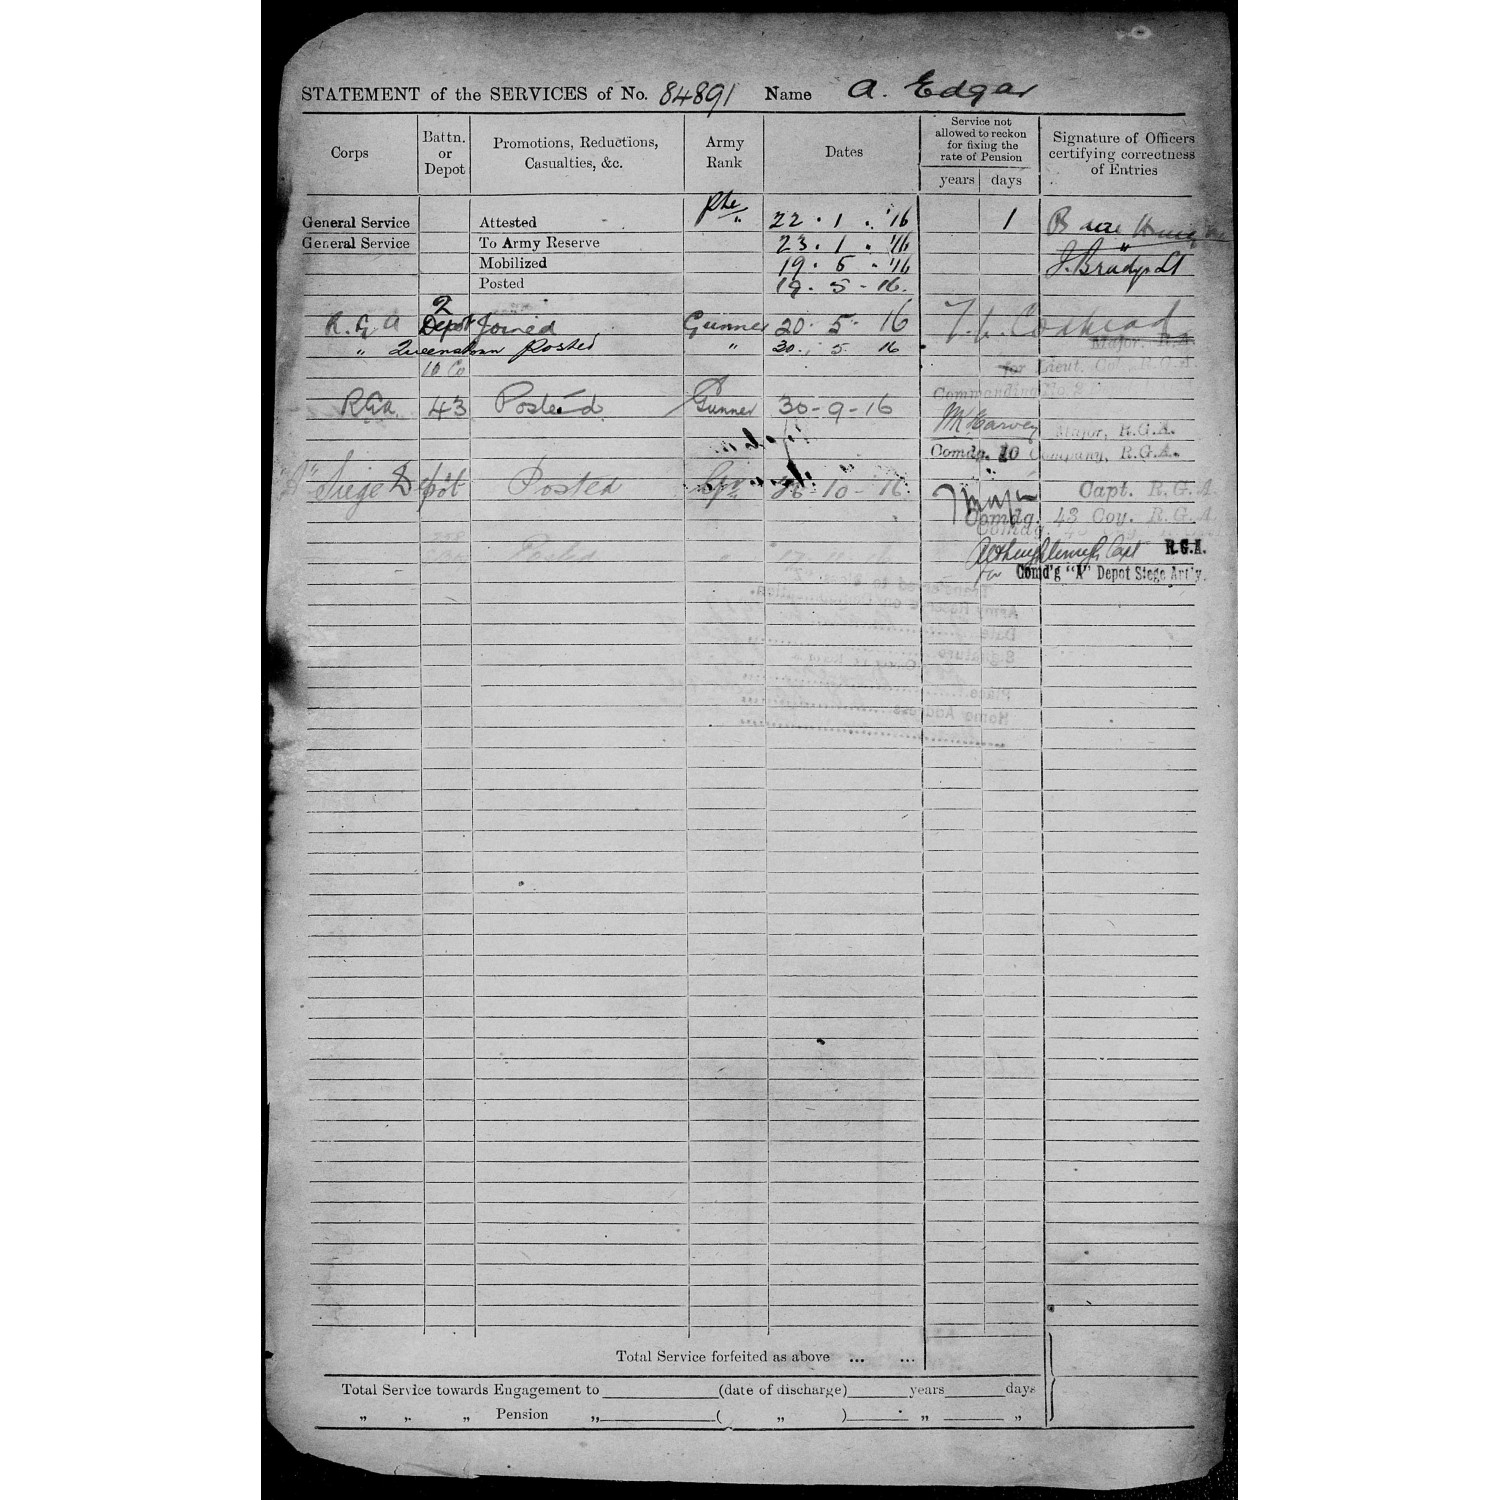 STATEMENT of the SERVICES of No. 84891 Name A. Edgar
Corps
Battn. or Depot
Promotions, Reductions, Casualties, &c.
Army Rank
Dates
Service not allowed to reckon for fixing the rate of Pension
years days
Signature of Officers certifying correctness of Entries
General Service Attested Pte 22 . 1 . '16 1
General Service To Army Reserve " 23 . 1 . '16 "
Mobilized 19 . 5 . '16 J. Brady Lt
Posted 19 - 5 - 16.
R.G.A 2 Depot Joined Gunner 20 . 5 . 16
Major. R.A.
" Queenstown Posted " 30 . 5 16
10 Co for Lieut. Col. R.G.A.
Commanding No. 2
RGA 43 Posted Gunner 30-9-16
Harvey Major, R.G.A.
Comdg. 10 Company, R.G.A.
"A" Siege Depot Posted Gnr 26-10-16. Capt. R.G.A.
Comdg. 43 Coy. R.G.A.
Comdg.
Posted
Capt R.G.A.
for Comd'g "A" Depot Siege Art'ly.
Transferred to
Army Reserve on
Date
Signature
Place
Home Address
Total Service forfeited as above ... ...
Total Service towards Engagement to (date of discharge) years days
" " " Pension " ( " ) " "